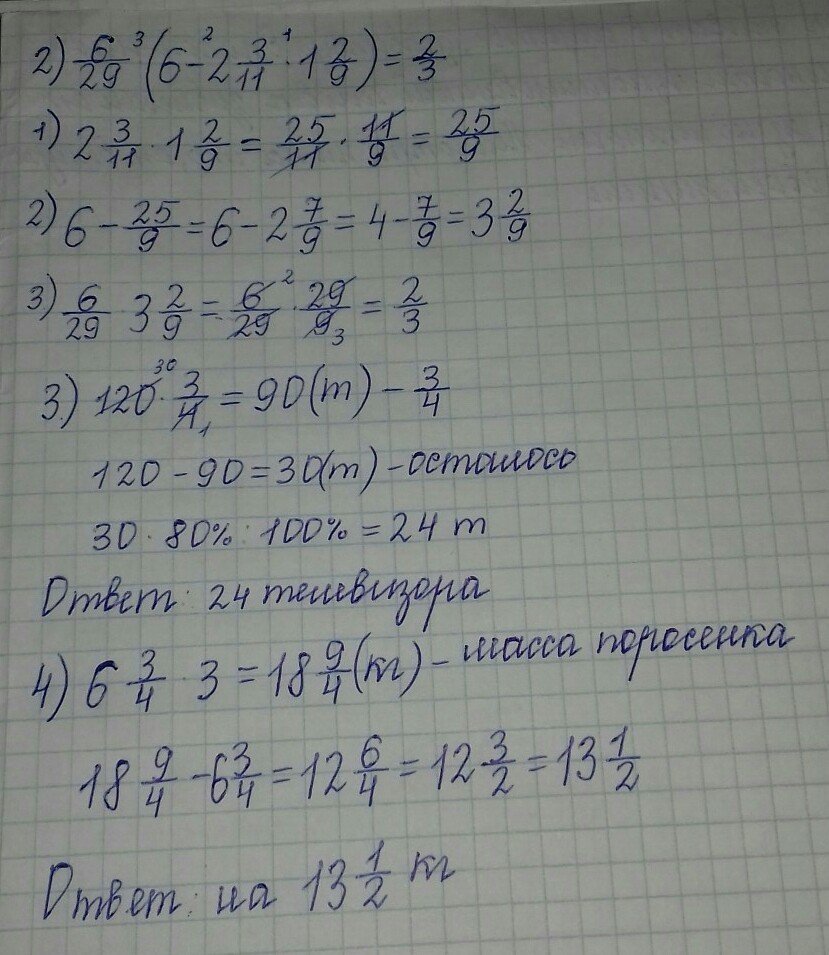 2) 6/29 ³ (6 -² 2 3/11 ·¹ 1 2/9) = 2/3
1) 2 3/11 · 1 2/9 = 25/11 · 11/9 = 25/9
2) 6 - 25/9 = 6 - 2 7/9 = 4 - 7/9 = 3 2/9
3) 6/29 · 3 2/9 = 6 ²/29 · 29/9 ₃ = 2/3
3.) 120 ³⁰ · 3/4 ₁ = 90 (т) - 3/4
120 - 90 = 30 (т) - осталось
30 · 80% : 100% = 24 т
Ответ: 24 телевизора
4) 6 3/4 · 3 = 18 9/4 (кг) - масса поросенка
18 9/4 - 6 3/4 = 12 6/4 = 12 3/2 = 13 1/2
Ответ: на 13 1/2 кг